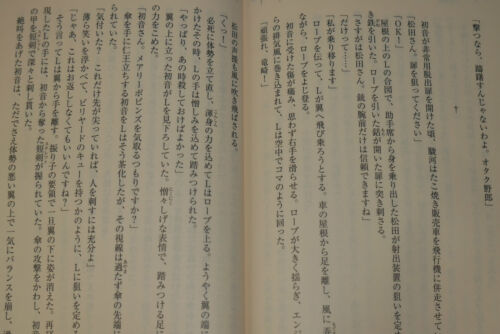 「撃つなら、躊躇すんじゃないわよ。オタク野郎」
初音が非常用脱出扉を開けた頃、駿河はたこ焼き販売車を飛行機に併走させて
「松田さん、扉を狙ってください」
「OK！」
屋根の上のLの合図で、助手席から身を乗り出した松田が射出装置の狙いを定
き鉄を引いた。ロープを引いた銛が開いた扉に突き刺さる。
「さすがは松田さん、銃の腕前だけは信頼できますね」
「だけって……」
「私が乗り移ります」
ロープを伝って、Lが翼へ飛び乗ろうとする。車の屋根から足を離し、風に
ながら、ロープをよじ登る。
初音に受けた傷が痛み、思わず右手を滑らせる。ロープが大きく揺らぎ、エンジ
らの排気風に巻き込まれて、Lは空中でコマのように回った。
「頑張れ、竜崎！」
松田の声援も風に吹き飛ばされる。
「くっ！」
必死に体勢を立て直し、渾身の力を込めてLはロープを上る。ようやく翼の端
かけたその時、Lの手は憎しみを込めて踏みつけられた。
「やっぱり、あの時殺しておけばよかった」
翼の上に立った初音がLを見下ろしていた。憎々しげな表情で、踏みつける足に
の力をこめた。
「初音さん、メアリーポピンズを気取るつもりですか？」
傘を手に仁王立ちする初音をLはそう茶化したが、その視線は過たず傘の先端に
られていた。
「気付いた？　これだけ先が尖っていれば、人を刺すには充分よ」
薄ら笑いを浮かべて、ビリヤードのキューを持つかのように、Lに狙いを定める
「じゃあ、これはお返ししなくてもいいんですね？」
そう言ってLは翼から手を離す。振り子の要領で一旦翼の下に姿が消えた。再び
現したLの手には、初音から奪った短剣が握られていた。傘の攻撃をかわし、
の甲を短剣で深々と刺し貫いた。
絶叫をあげた初音は、ただでさえ体勢の悪い翼の上で一気にバランスを崩し、